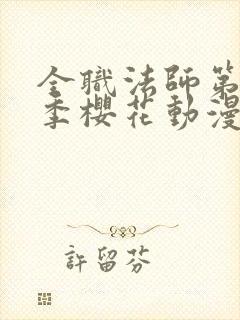 全職法師第
季櫻花動漫
許留芬